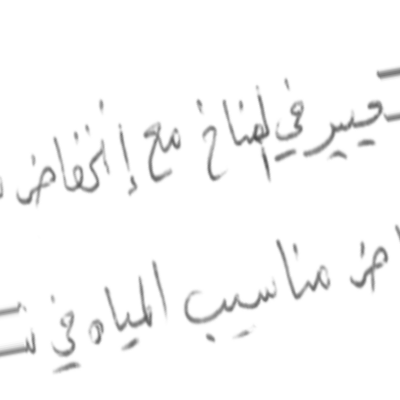 تغيير في المناخ مع إنخفاض
مناسيب المياه في